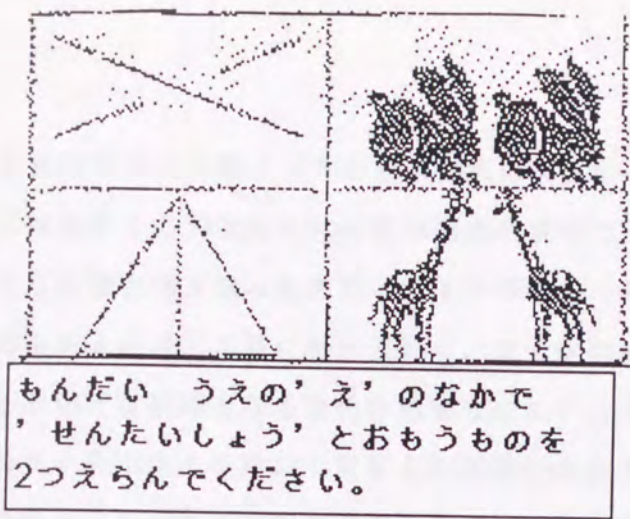 もんだい　うえの’え’のなかで
’せんたいしょう’とおもうものを
2つえらんでください。